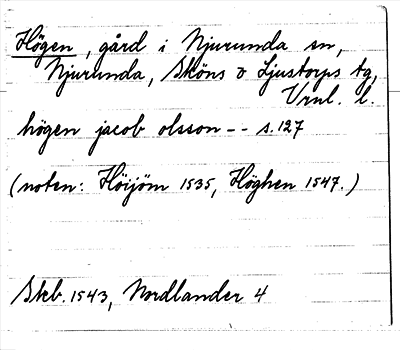 Högen, gård i Njurunda sn,
Njurunda, Sköns o Ljustorps tg,
Vrnl. l.
högen jacob olsson -- s. 127
(noten: Höijöm 1535, Höghen 1547.)
Skb. 1543, Nordlander 4